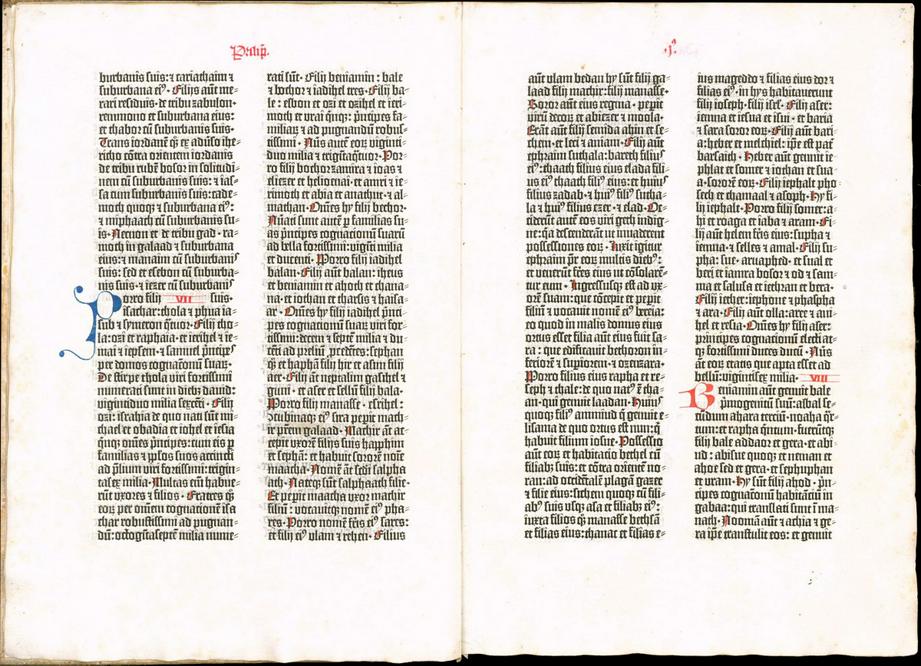 Paralip̄.
burbanis suis: ⁊ cariathaim ⁊
suburbana eiꝰ. Filijs aut̄ me-
rari residuis: de tribu zabulon.
remmono et suburbana eius:
et thabor cū suburbanis suis.
Trans iordanē ꝙ̄ ex adūso ihe-
richo cōtra orientem iordanis
de tribu rubē bosor in solitudi-
nem cū suburbanis suis: ⁊ ias-
sa cum suburbanis suis: cade-
moth quoqꝫ ⁊ suburbana eiꝰ:
⁊ miphaath cū suburbanis su-
is. Necnon et de tribu gad. ra-
moth in galaad ⁊ suburbana
eius: ⁊ manaim cū suburbanis
suis: sed et esebon cū suburba-
nis suis: ⁊ iezer cū suburbanis
suis. VII
Porro filij
isachar: thola ⁊ phua ia-
sub ⁊ symeron q̄tuor. Filij tho-
la: ozi et raphaia. et ierihel et ie-
mai ⁊ iepsem. ⁊ samuel p̄ncipes
per domos cognationū suaꝝ.
De stirpe thola viri fortissimi
numerati sunt in diebꝫ dauid:
viginti duo milia sexcēti. Filij
ozi: israhia de quo nati sūt mi-
chael et obadia et iohel et iesia
quinqꝫ om̄es p̄ncipes: cum eis p̄
familias ⁊ pp̄los suos accincti
ad p̄lium viri fortissimi: trigin-
ta sex milia. Multas enī habue-
rūt vxores ⁊ filios. Fratres qꝫ
eoꝝ per om̄em cognationē isa-
char robustissimi ad pugnan-
dū: octogīta septē milia nume-
rati sūt. Filij beniamin: bale
⁊ bochor ⁊ iadihel tres. Filij ba-
le: esbon et ozi et ozihel et ieri-
moth et vrai quinqꝫ: p̄ncipes fa-
miliaꝝ ⁊ ad pugnandū robus-
tissimi. Nūs aut̄ eoꝝ viginti
duo milia ⁊ trigīta q̄tuor. Por-
ro filij bochor: zamira ⁊ ioas ⁊
eliezer et helioenai. et amri ⁊ ie-
rimoth et abia et anathoth. ⁊ al-
mathan. Om̄es hij filij bechor.
Nūati sunt autē p̄ familias su-
as p̄ncipes cognationū suarū
ad bella fortissimi: viginti milia
et ducenti. Porro filij iadihel
balan. Filij aut̄ balan: iheus
et beniamin et ahoth et chana-
na. et iothan et tharsis ⁊ haisa-
ar. Om̄es hij filij iadihel p̄nci-
pes cognationū suaꝝ viri for-
tissimi: decem et septē milia ⁊ du-
cēti ad preliū p̄cedentes: sephan
qꝫ et haphan filij hir et asim filij
aer. Filij aut̄ neptalim gasihel ⁊
guni. et aser et sellū filij bala.
Porro filij manasse. esrihel ⁊
cōcubina eiꝰ sira peperit mach-
ir patrem galaad. Machir aut̄ ac-
cepit vxorē filijs suis happhim
et sephan: et habuit sororē noīe
maacha. Nomē aut̄ scdi salpha-
ath. Nateqꝫ sūt salphaath filie.
Et peperit maacha vxor machir
filiū: vocauitqꝫ nomē eiꝰ pha-
res. Porro nomē fratris eiꝰ sares:
et filij eiꝰ vlam ⁊ rechen. Filius
aut̄ vlam bedan: hij sūt filij ga-
laad filij machir: filij manasse.
Soror aut̄ eius regina. peperit
virū decoꝝ et abiezer ⁊ moola.
Erāt aut̄ filij semida ahin et se-
chem. et leci ⁊ aniam. Filij aut̄
ephraim suthala: bareth filius
eiꝰ: thaath filius eius elada fili-
us eiꝰ thaath filiꝰ eius: et huius
filius zadab. ⁊ huiꝰ filiꝰ sutha-
la ⁊ huiꝰ filius ezer. ⁊ elad. Oc-
ciderūt autē eos viri geth indige-
ne: q̄a descenderāt ut inuaderent
possessiones eoꝝ. Luxit igitur
ephraim p̄r eoꝝ multis diebꝫ:
et venerūt fr̄es eius ut cōsolarē-
tur eum. Ingressusqꝫ est ad vx-
orē suam: que cōcepit et peperit
filiū ⁊ vocauit nomē eiꝰ beria:
eo quod in malis domus eius
ortus esset filia aut̄ eius fuit sa-
ra: que edificauit bethoron in-
feriorē ⁊ superiorem. ⁊ ozensara.
Porro filius eius rapha et re-
seph ⁊ thale: de quo natꝰ ē tha-
an. qui genuit laadan. Huiꝰ
quoqꝫ filiꝰ ammiud q̄ genuit e-
lisama de quo ortus est nun: q̄
habuit filium iosue. Possessio
aut̄ eoꝝ et habitatio bethel cū
filiabꝫ suis: et cōtra orientē no-
ran: ad occidētalē plagā gazer
⁊ filie eius: sichem quoqꝫ cū fili-
abꝫ suis vsqꝫ asa et filiabꝫ eiꝰ:
iuxta filios qꝫ manasse bethsā
et filias eius: thanac et filias e-
ius mageddo ⁊ filias eius dor ⁊
filias eiꝰ. in hijs habitauerunt
filij ioseph. filij isrl. Filij aser:
iemna et iesua et isui. et baria
⁊ sara soror eoꝝ. Filij aut̄ bari-
a: heber et melchiel: ipē est pater
barsaith. Heber aut̄ genuit ie-
phlat et somer ⁊ iothan et sua-
a. sororē eoꝝ. Filij iephalt pho-
sech et chamaal ⁊ asoph. Hij fi-
lij iephalt. Porro filij somer: a-
hi et roaga et iaba ⁊ aram. Fi-
lij aut̄ helem fr̄is eius: supha ⁊
iemna. ⁊ selles ⁊ amal. Filij su-
pha: sue. arnaphed. et sual et
beri et iamra bosor ⁊ od ⁊ sam-
ma et salusa et iethran et bera.
Filij iether: iephone ⁊ phaspha
⁊ ara. Filij aut̄ olla: aree ⁊ ani-
hel et resia. Om̄es hij filij aser:
principes cognationū electi at-
qꝫ fortissimi duces ducū. Nūs
aut̄ eoꝝ etatis que apta esset ad
bellū: viginti sex milia. VIII
Beniamin aut̄ genuit bale
p̄mogenitū suū: asbal se-
cūdum ahara terciū. noaha q̄r-
tum: et rapha q̄ntum. fuerūtqꝫ
filij bale addaor et gera. et abi-
ud: abisue quoqꝫ et neman et
ahoe sed et gera. et sephuphan
et vram. Hij sūt filij ahod. p̄n-
cipes cognationū habitātiū in
gabaa: qui translati sunt ī ma-
nath. Nooma aut̄ ⁊ achia ⁊ ge-
ra ip̄e transtulit eos: et genuit